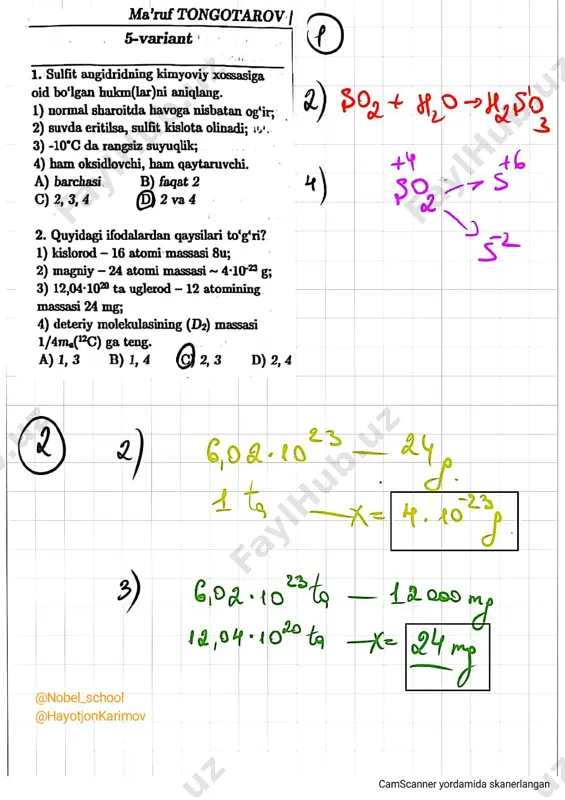 Ma'ruf TONGOTAROV
5-variant
1
1. Sulfit angidridning kimyoviy xossasiga
oid bo'lgan hukm(lar)ni aniqlang.
1) normal sharoitda havoga nisbatan og'ir;
2) suvda eritilsa, sulfit kislota olinadi;
3) -10°C da rangsiz suyuqlik;
4) ham oksidlovchi, ham qaytaruvchi.
A) barchasi B) faqat 2
C) 2, 3, 4 D) 2 va 4
2) SO₂ + H₂O → H₂SO₃
4) +4 +6
SO₂ → S
S⁻²
2. Quyidagi ifodalardan qaysilari to'g'ri?
1) kislorod – 16 atomi massasi 8u;
2) magniy – 24 atomi massasi ~ 4·10⁻²³ g;
3) 12,04·10²⁰ ta uglerod – 12 atomining
massasi 24 mg;
4) deteriy molekulasining (D₂) massasi
1/4mₐ(¹²C) ga teng.
A) 1, 3 B) 1, 4 C) 2, 3 D) 2, 4
2
2) 6,02·10²³ — 24g.
1 ta — x= 4·10⁻²³g.
3) 6,02·10²³ ta — 12000 mg
12,04·10²⁰ ta — x= 24 mg
@Nobel_school
@HayotjonKarimov
CamScanner yordamida skanerlangan
FaylHub.uz
FaylHub.uz
FaylHub.uz